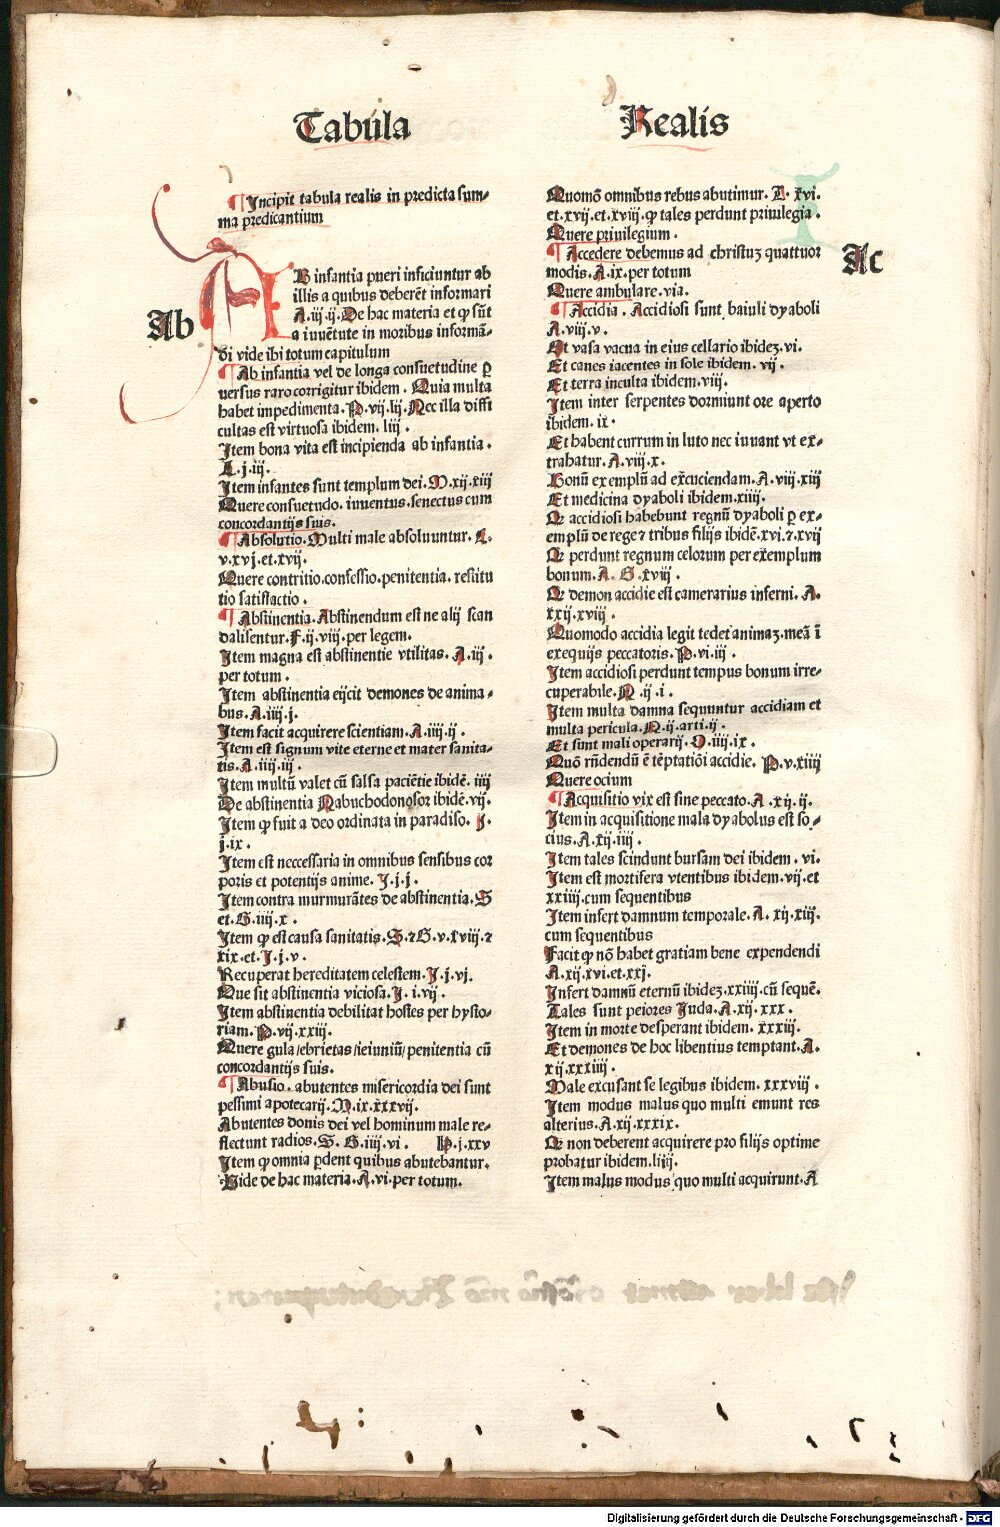 Tabula
Realis
¶ Incipit tabula realis in predicta sum-
ma predicantium
Ab
AB infantia pueri inficiuntur ab
illis a quibus deberēt informari
A.iij.ij. De hac materia et ꝙ sūt
a iuuētute in moribus informā-
di vide ibi totum capitulum
¶ Ab infantia vel de longa consuetudine ꝑ
uersus raro corrigitur ibidem. Quia multa
habet impedimenta. P.vij.lij. Nec illa diffi
cultas est virtuosa ibidem. liij.
Item bona vita est incipienda ab infantia.
L.j.iij.
Item infantes sunt templum dei. M.xij.xiij
Quere consuetudo. iuuentus. senectus cum
concordantijs suis.
¶ Absolutio. Multi male absoluuntur. L.
v.xvj.et.xvij.
Quere contritio.confessio.penitentia. restitu
tio satisfactio.
¶ Abstinentia. Abstinendum est ne alij scan
dalisentur. F.ij.viij. per legem.
Item magna est abstinentie vtilitas. A.iij.
per totum.
Item abstinentia eijcit demones de anima-
bus. A.iiij.j.
Item facit acquirere scientiam. A.iiij.ij.
Item est signum vite eterne et mater sanita-
tis. A.iiij.iij.
Item multū valet cū salsa paciētie ibidē. iiij
De abstinentia Nabuchodonosor ibidē.vij.
Item ꝙ fuit a deo ordinata in paradiso. J.
j.ix.
Item est neccessaria in omnibus sensibus cor
poris et potentijs anime. J.j.j.
Item contra murmurātes de abstinentia. S
et. G.iiij.x.
Item ꝙ est causa sanitatis. S.⁊G.v.xviij.⁊
xix.et. J.j.v.
Recuperat hereditatem celestem. J.j.vj.
Que sit abstinentia viciosa. J.i.vij.
Item abstinentia debilitat hostes per hysto-
riam. P.vij.xxiij.
Quere gula/ebrietas/ieiuniū/penitentia cū
concordantijs suis.
¶ Abusio. abutentes misericordia dei sunt
pessimi apotecarij. M.ix.xxxvij.
Abutentes donis dei vel hominum male re-
flectunt radios. S. G.iiij.vi. H.j.xxv
Item ꝙ omnia ꝑdent quibus abutebantur.
Vide de hac materia. A.vi. per totum.
Quomō omnibus rebus abutimur. L. xvi.
et.xvij.et.xviij. ꝙ tales perdunt priuilegia.
Quere priuilegium.
¶ Accedere debemus ad christuꝫ quattuor
modis. A.ix. per totum
Quere ambulare. via.
Ac
¶ Accidia. Accidiosi sunt baiuli dyaboli
A.viij.v.
Et vasa vacua in eius cellario ibideꝫ.vi.
Et canes iacentes in sole ibidem. vij.
Et terra inculta ibidem.viij.
Item inter serpentes dormiunt ore aperto
ibidem. ix.
Et habent currum in luto nec iuuant vt ex-
trahatur. A.viij.x.
Bonū exemplū ad excuciendam. A.viij.xiij
Et medicina dyaboli ibidem.xiiij.
Qꝛ accidiosi habebunt regnū dyaboli ꝑ ex-
emplū de rege ⁊ tribus filijs ibidē.xvi.⁊.xvij
Qꝛ perdunt regnum celorum per exemplum
bonum. A. G.xviij.
Qꝛ demon accidie est camerarius inferni. A.
xxij.xviij.
Quomodo accidia legit tedet animaꝫ meā ī
exequijs peccatoris. P.vi.iij.
Item accidiosi perdunt tempus bonum irre-
cuperabile. N.ij.i.
Item multa damna sequuntur accidiam et
multa pericula. N.ij.arti.ij.
Et sunt mali operarij. O.iiij.ix.
Quō rn̄dendū ē tēptatiōi accidie. P.v.xiiij
Quere ocium
¶ Acquisitio vix est sine peccato. A.xij.ij.
Item in acquisitione mala dyabolus est so-
cius. A.xij.iiij.
Item tales scindunt bursam dei ibidem. vi.
Item est mortifera vtentibus ibidem.vij.et
xxiiij.cum sequentibus
Item infert damnum temporale. A. xij.xiij.
cum sequentibus
Facit ꝙ nō habet gratiam bene expendendi
A.xij.xvi.et.xxj.
Infert damnū eternū ibideꝫ.xxiiij.cū sequē.
Tales sunt peiores Juda. A.xij. xxx.
Item in morte desperant ibidem. xxxiij.
Et demones de hoc libentius temptant. A.
xij.xxxiiij.
Male excusant se legibus ibidem. xxxviij.
Item modus malus quo multi emunt res
alterius. A.xij.xxxix.
Qꝛ non deberent acquirere pro filijs optime
probatur ibidem.liiij.
Item malus modus quo multi acquirunt. A
Digitalisierung gefördert durch die Deutsche Forschungsgemeinschaft - DFG